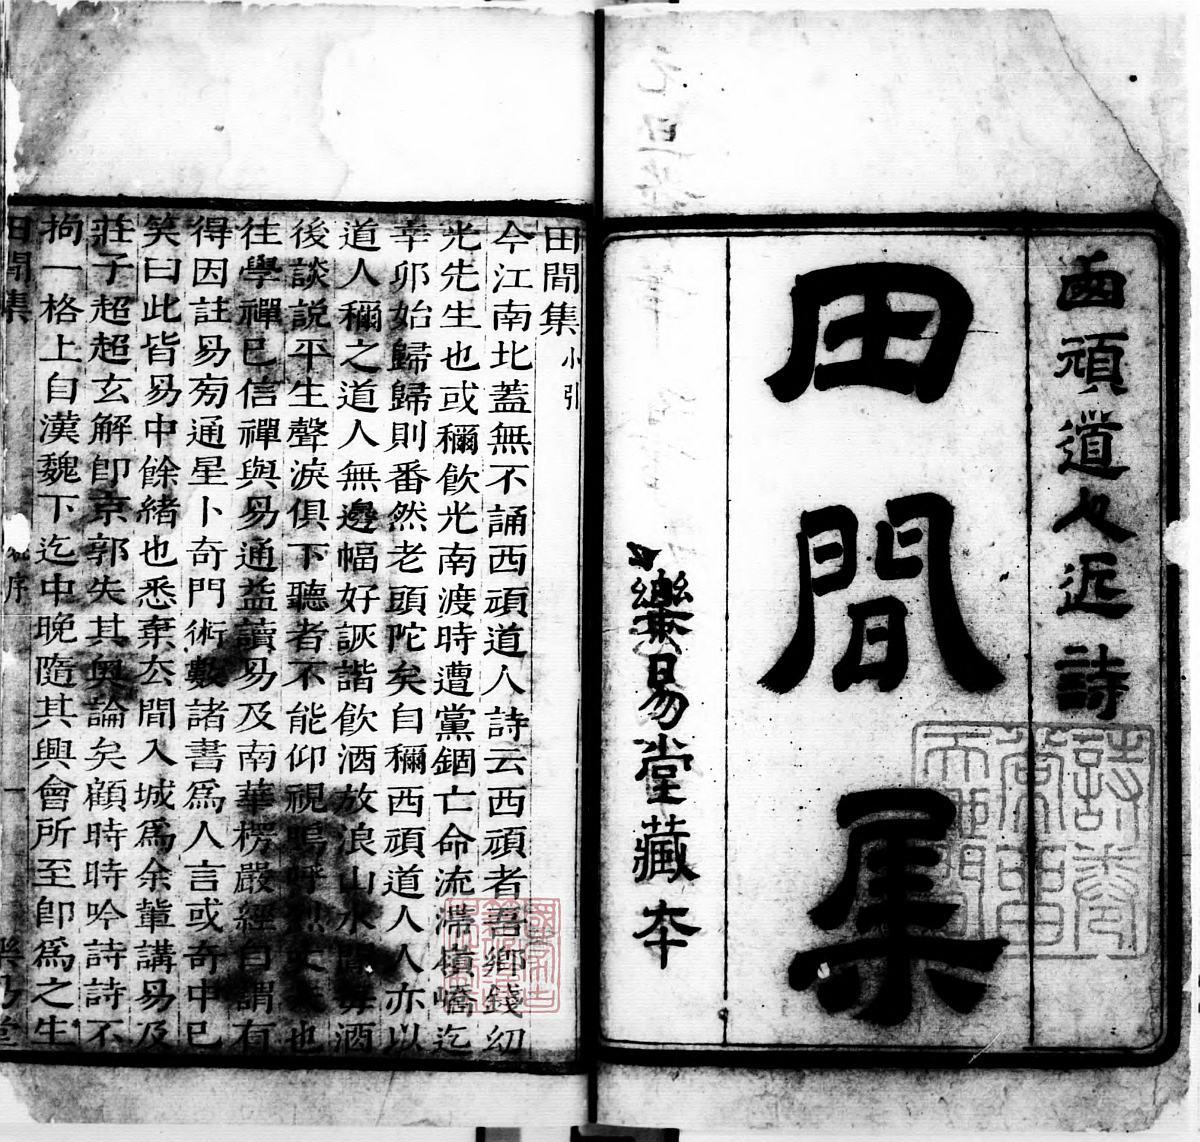 西頑道人近詩
田間集
樂易堂藏本
田間集小引
今江南北蓋無不誦西頑道人詩云西頑者吾鄉錢幼
光先生也或稱飲光南渡時遭黨錮亡命流滯嶺嶠迄
辛卯始歸歸則番然老頭陀矣自稱西頑道人人亦以
道人稱之道人無邊幅好詼諧飲酒放浪山水間每酒
後談說平生聲淚俱下聽者不能仰視嗚呼烈丈夫也
往學禪已信禪與易通益讀易及南華楞嚴經自謂有
得因註易旁通星卜奇門術數諸書爲人言或奇中已
笑曰此皆易中餘緒也悉棄去間入城爲余輩講易及
莊子超超玄解卽京郭失其奧論矣顧時時吟詩詩不
拘一格上自漢魏下迄中晚隨其興會所至卽爲之生
田間集
序
一